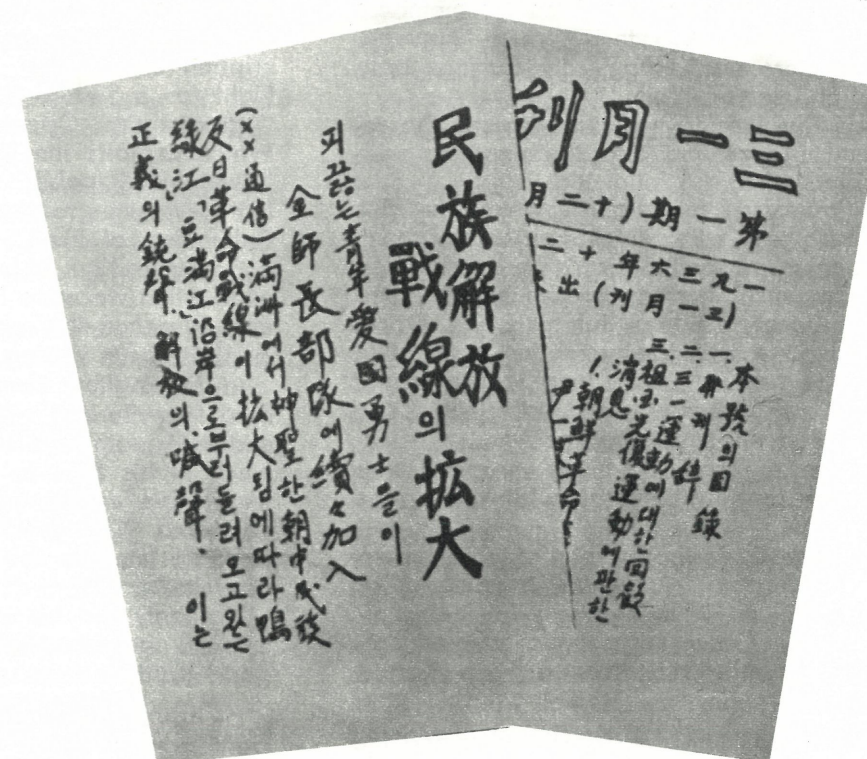 三一月刊
第一期(十二月
一九三六年十二
(三一月刊)出
本號의目錄
一. 発刊辞
二. 三一運動에대한回
三. 祖国光復運動에관한
消息
1. 朝鮮革命
尹一
民族解放
戰線의拡大
피끓는青年愛國勇士들이
金師長部隊에續々加入
(××通信)滿洲에서神聖한朝中民族
反日革命戰線이拡大됨에따라鴨
綠江, 豆滿江沿岸으로부터들려오고있는
正義의銃聲, 解放의喊聲, 이는